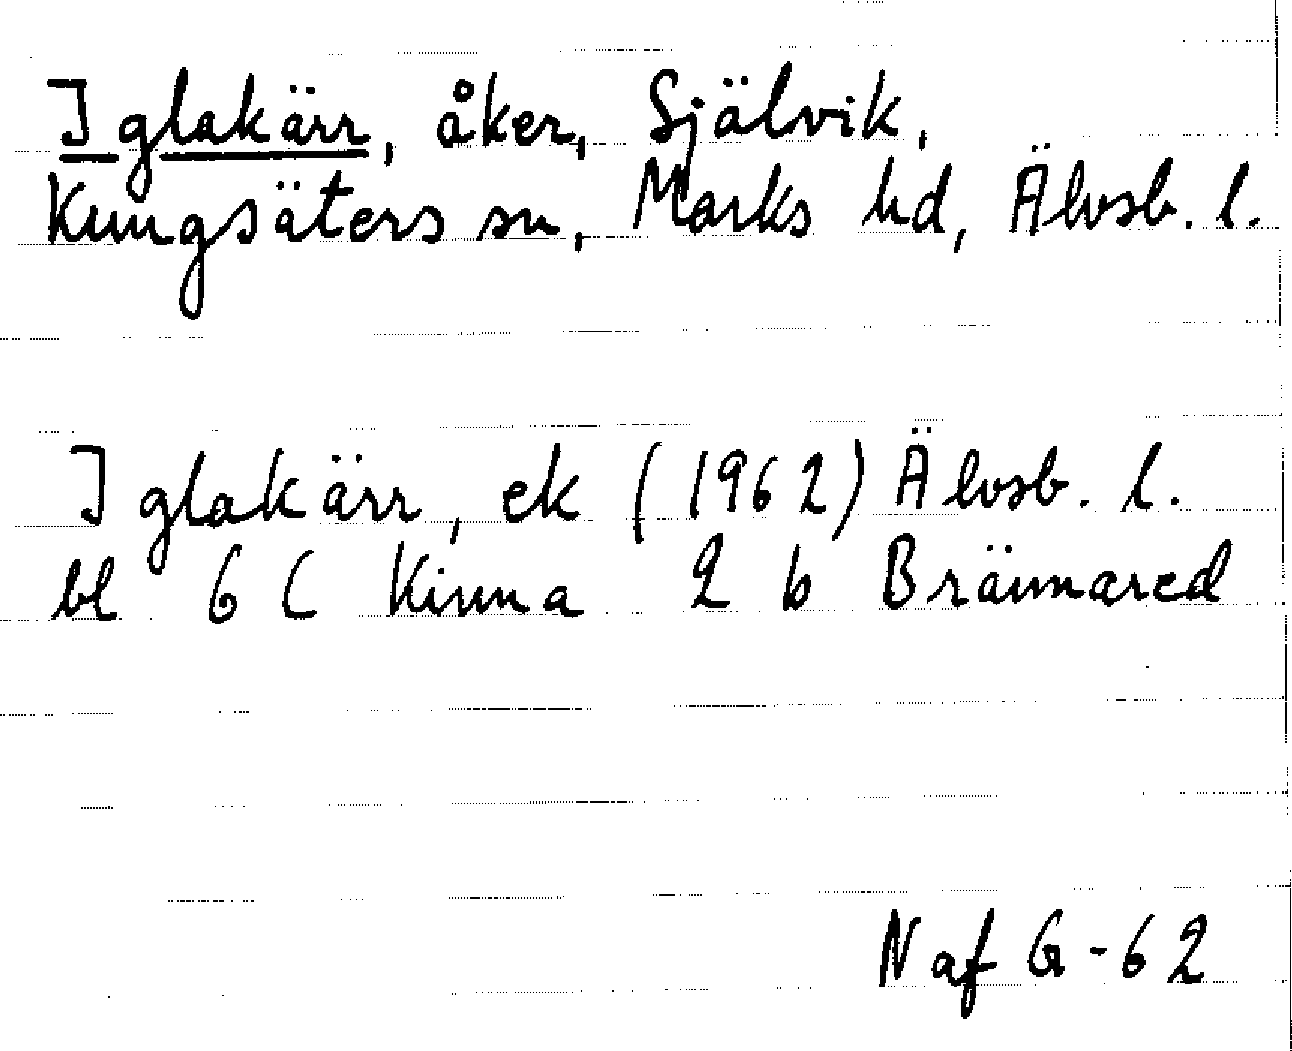 Iglakärr, åker, Självik,
Kungsäters sn, Marks hd, Älvsb. l.
Iglakärr, ek (1962) Älvsb. l.
bl 6 C Kinna 2 b Brännared
N af G-62